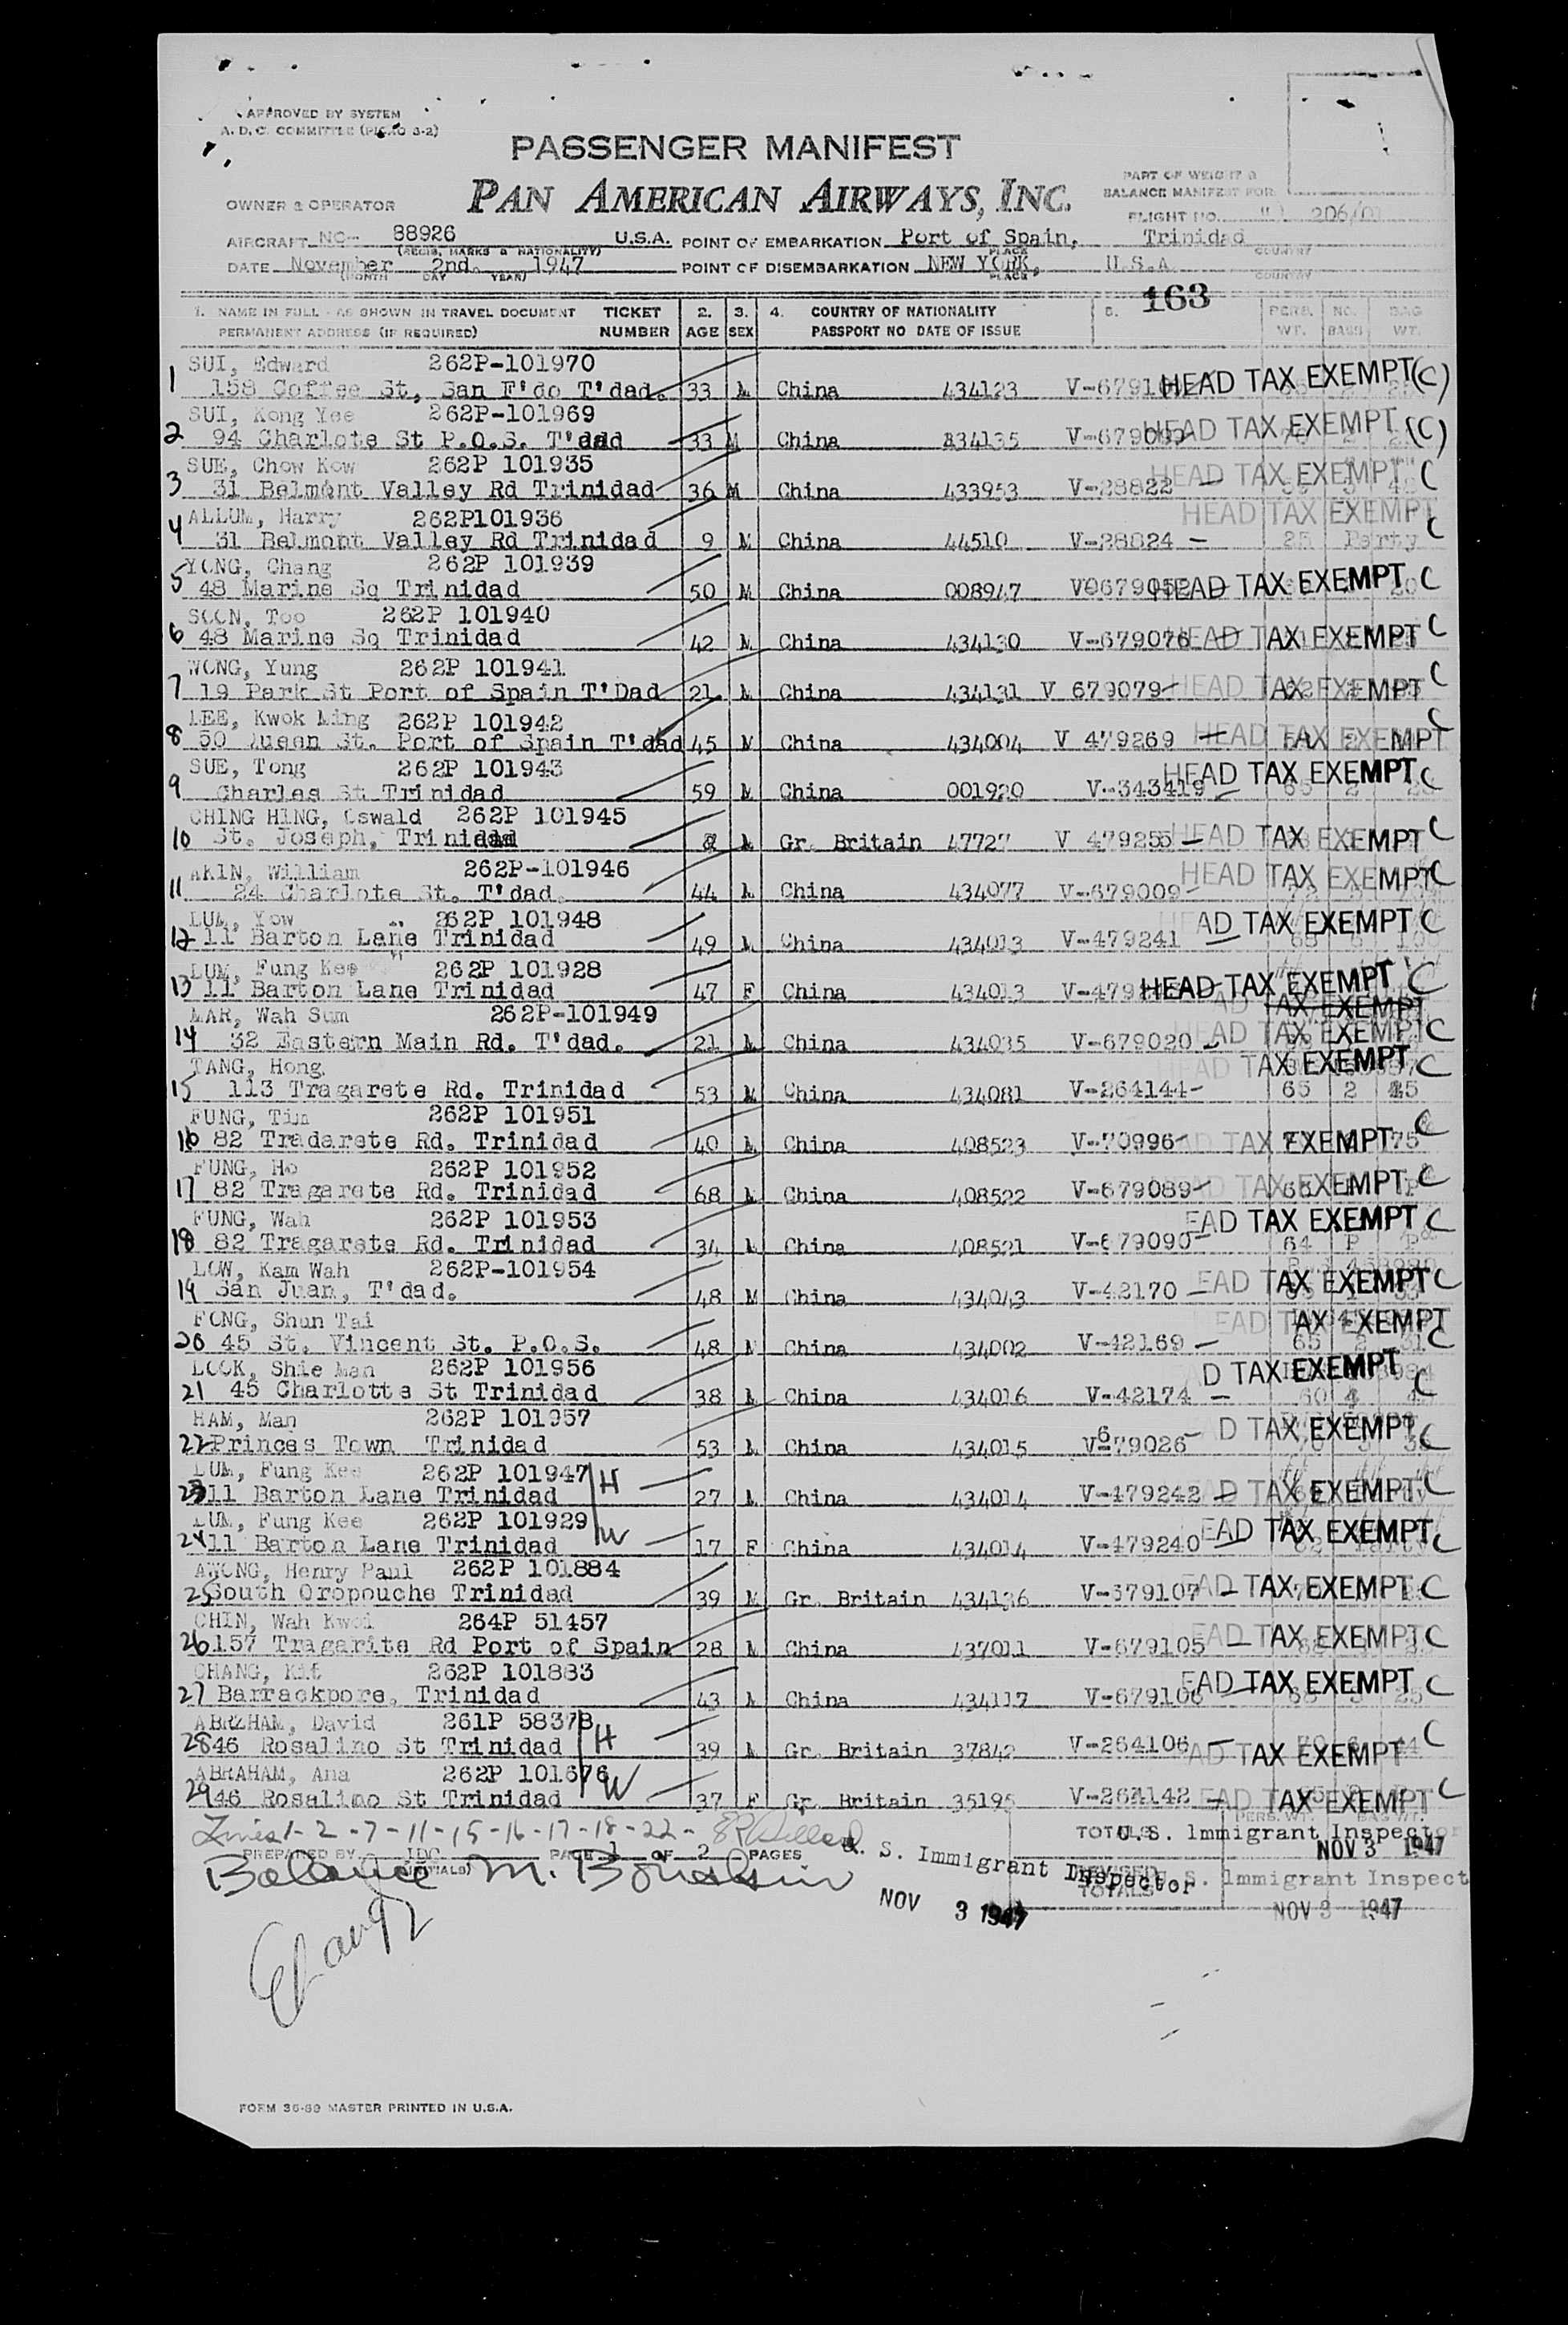 APPROVED BY SYSTEM
A. D. C. COMMITTEE
PASSENGER MANIFEST
PAN AMERICAN AIRWAYS, INC.
PART OF WEIGHT &
BALANCE MANIFEST FOR
OWNER & OPERATOR
FLIGHT NO. 206/01
AIRCRAFT NC- 88926 U.S.A. POINT OF EMBARKATION Port of Spain, Trinidad
(REGIS. MARKS & NATIONALITY) PLACE COUNTRY
DATE November 2nd. 1947 POINT OF DISEMBARKATION NEW YORK, U.S.A.
(MONTH DAY YEAR) PLACE COUNTRY
163
1. NAME IN FULL - AS SHOWN IN TRAVEL DOCUMENT TICKET 2. 3. 4. COUNTRY OF NATIONALITY 5. PERS. NO. BAG
PERMANENT ADDRESS (IF REQUIRED) NUMBER AGE SEX PASSPORT NO DATE OF ISSUE WT. BAGS WT.
SUI, Edward 262P-101970
1 158 Coffee St, San F'do T'dad. 33 M China 434123 HEAD TAX EXEMPT (C)
SUI, Kong Yee 262P-101969
2 94 Charlote St P.O.S. T'dad 33 M China 434135 HEAD TAX EXEMPT (C)
SUE, Chow Kow 262P 101935
3 31 Belmont Valley Rd Trinidad 36 M China 433953 V-28822 HEAD TAX EXEMPT C
ALLUM, Harry 262P101936 HEAD TAX EXEMPT
4 31 Belmont Valley Rd Trinidad 9 M China 44510 V-28824 - 25 Party C
YONG, Chang 262P 101939
5 48 Marine Sq Trinidad 50 M China 008947 V0679052 HEAD TAX EXEMPT C
SOON, Too 262P 101940
6 48 Marine Sq Trinidad 42 M China 434130 V-679076 HEAD TAX EXEMPT C
WONG, Yung 262P 101941
7 19 Park St Port of Spain T'Dad 21 M China 434131 V 679079 HEAD TAX EXEMPT C
LEE, Kwok Ming 262P 101942
8 50 Queen St. Port of Spain T'dad 45 M China 434004 V 479269 HEAD TAX EXEMPT C
SUE, Tong 262P 101943 HEAD TAX EXEMPT C
9 Charles St Trinidad 59 M China 001920 V-343419 65 2
CHING HING, Oswald 262P 101945
10 St. Joseph, Trinidad M Gr. Britain 47727 V 479255 HEAD TAX EXEMPT C
AKIN, William 262P-101946 HEAD TAX EXEMPT C
11 24 Charlote St. T'dad. 44 M China 434077 V-679009
LUM, Yow 262P 101948 HEAD TAX EXEMPT C
12 11 Barton Lane Trinidad 49 M China 434013 V-479241 68
LUM, Fung Kee 262P 101928
13 11 Barton Lane Trinidad 47 F China 434013 HEAD TAX EXEMPT C
MAR, Wah Sum 262P-101949 TAX EXEMPT
14 32 Eastern Main Rd. T'dad. 21 M China 434035 V-679020 HEAD TAX EXEMPT C
TANG, Hong HEAD TAX EXEMPT C
15 113 Tragarete Rd. Trinidad 53 M China 434081 V-264144- 65 2 45
FUNG, Tim 262P 101951
16 82 Tradarete Rd. Trinidad 40 M China 408523 V-70996 TAX EXEMPT C
FUNG, Ho 262P 101952
17 82 Tragarete Rd. Trinidad 68 M China 408522 V-679089 TAX EXEMPT C
FUNG, Wah 262P 101953 EAD TAX EXEMPT C
18 82 Tragarete Rd. Trinidad 34 M China 408521 V-679090 64 P P
LOW, Kam Wah 262P-101954
19 San Juan, T'dad. 48 M China 434043 V-42170 EAD TAX EXEMPT C
FONG, Shun Tai EAD TAX EXEMPT
20 45 St. Vincent St. P.O.S. 48 M China 434002 V-42169 - 65 2 31 C
LOOK, Shie Man 262P 101956 D TAX EXEMPT
21 45 Charlotte St Trinidad 38 M China 434016 V-42174 - C
HAM, Man 262P 101957 D TAX EXEMPT C
22 Princes Town Trinidad 53 M China 434015 V-679026
LUM, Fung Kee 262P 101947 H
23 11 Barton Lane Trinidad 27 M China 434014 V-479242 D TAX EXEMPT C
LUM, Fung Kee 262P 101929 W
24 11 Barton Lane Trinidad 17 F China 434014 V-479240 EAD TAX EXEMPT C
AWONG, Henry Paul 262P 101884
25 South Oropouche Trinidad 39 M Gr. Britain 434136 V-379107 EAD TAX EXEMPT C
CHIN, Wah Kwoi 264P 51457
26 157 Tragarite Rd Port of Spain 28 M China 437011 V-679105 EAD TAX EXEMPT C
CHANG, Kit 262P 101883
27 Barrackpore, Trinidad 43 M China 434117 V-679106 EAD TAX EXEMPT C
ABRAHAM, David 261P 58378 H
28 46 Rosalino St Trinidad 39 M Gr. Britain 37842 V-264106 AD TAX EXEMPT C
ABRAHAM, Ana 262P 101676 W
29 46 Rosalino St Trinidad 37 F Gr. Britain 35195 V-264142 EAD TAX EXEMPT C
Lines 1-2-7-11-15-16-17-18-22-
PREPARED BY (INITIALS) PAGE 1 OF 2 PAGES
TOTALS U.S. Immigrant Inspector
NOV 3 1947
Balance M.
U. S. Immigrant Inspector
NOV 3 1947
REVISED TOTALS
U. S. Immigrant Inspect
NOV 3 1947
FORM 36-89 MASTER PRINTED IN U.S.A.